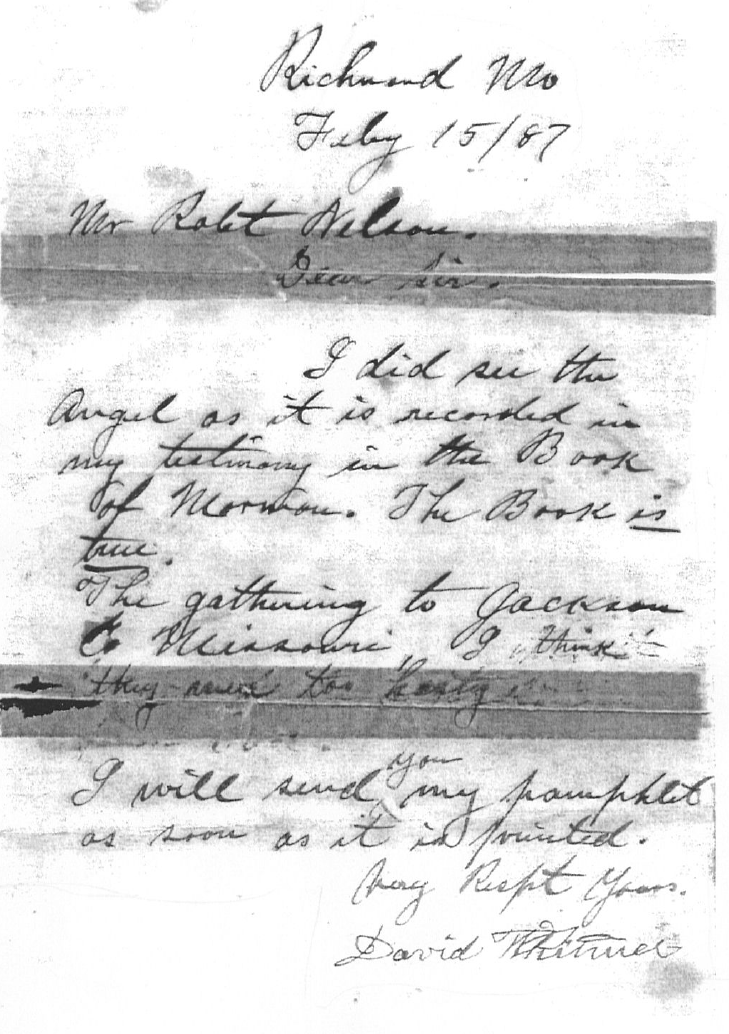 Richmond Mo
Feby 15/87
Mr Robt Nelson.
Dear Sir.
I did see the
Angel as it is recorded in
my testimony in the Book
of Mormon. The Book is
true.
The gathering to Jackson
Co Missouri, I think
they were too hasty
I will send you my pamphlet
as soon as it is printed.
Very Respt Yours.
David Whitmer